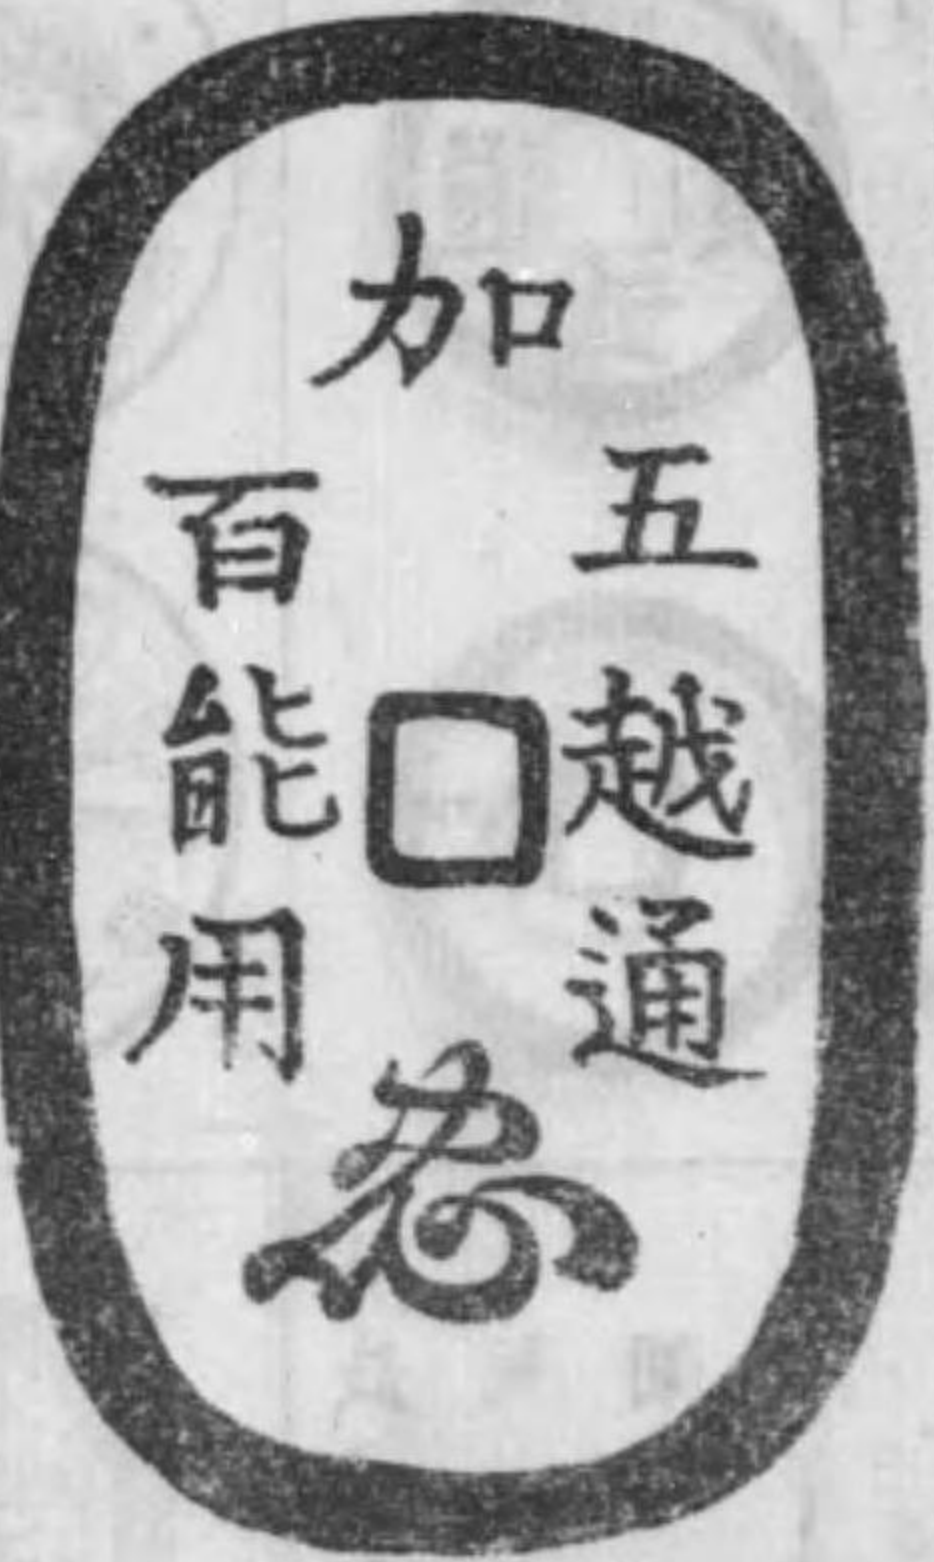 加
五越通
百能用